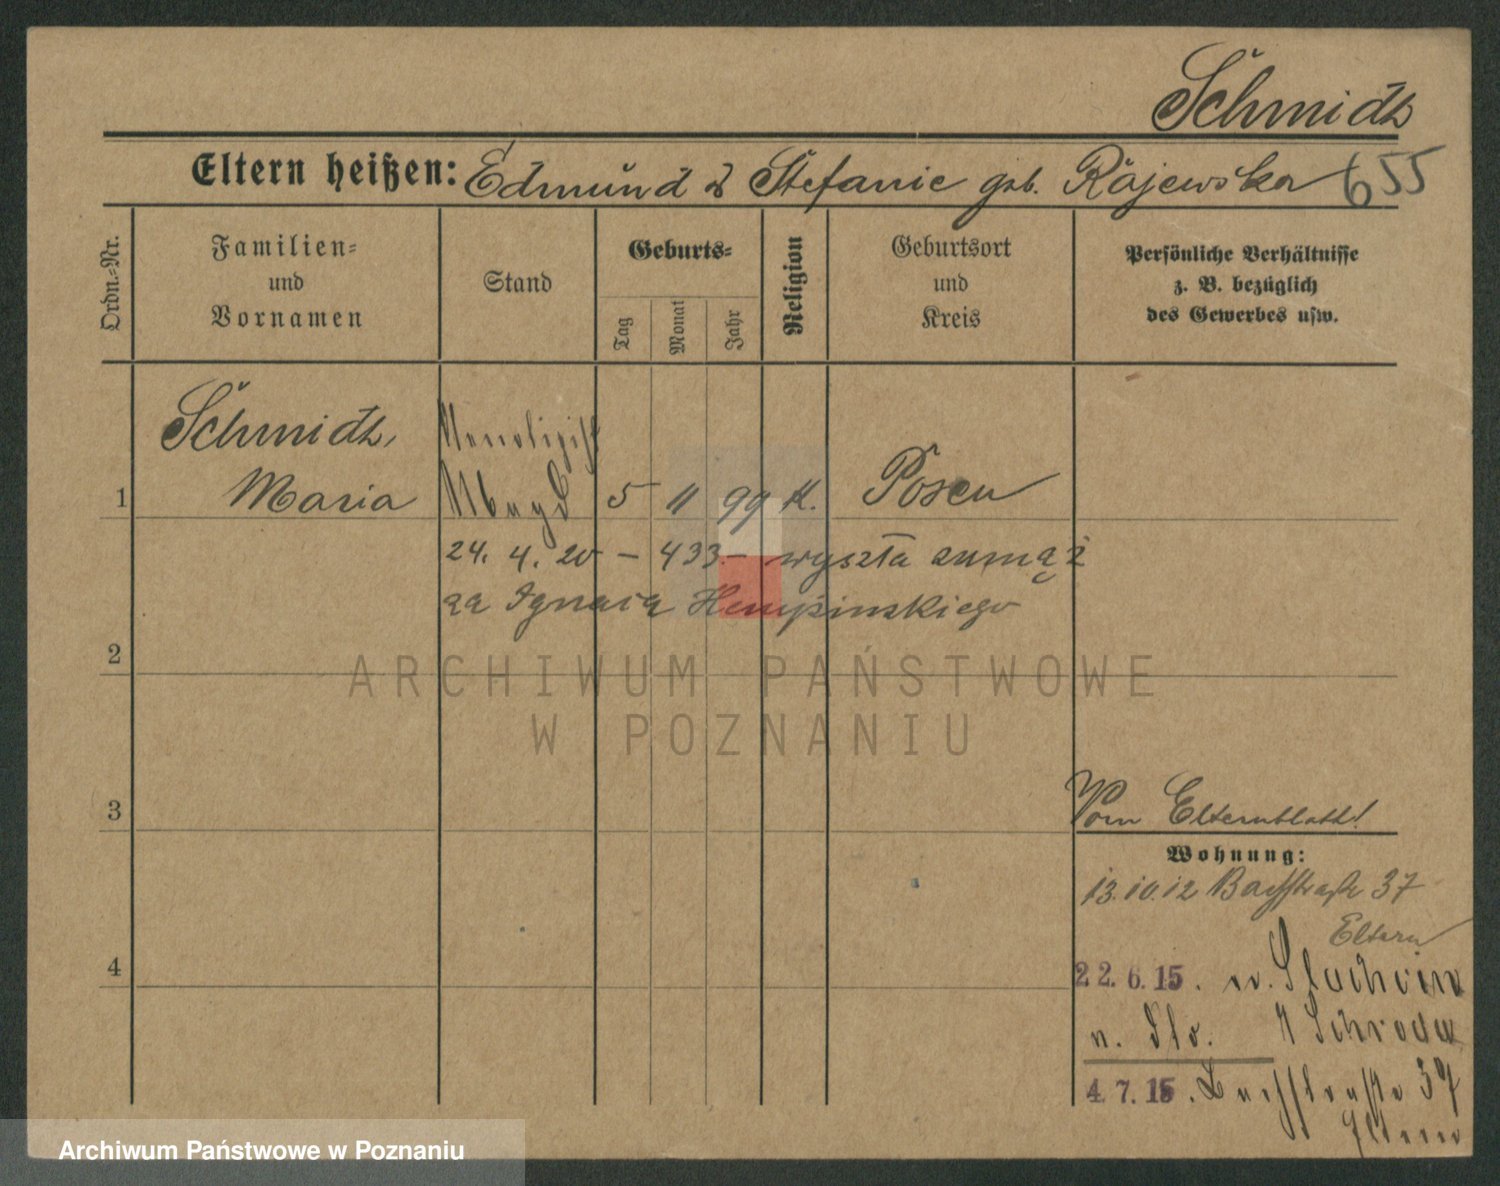 Schmidt
Eltern heißen: Edmund & Stefanie geb. Rajewska 655
Ordn.-Nr.
Familien-
und
Vornamen
Stand
Geburts-
Tag
Monat
Jahr
Religion
Geburtsort
und
Kreis
Persönliche Verhältnisse
z. B. bezüglich
des Gewerbes usw.
Schmidt,
1 Maria Magd 5 11 99 K. Posen
24. 4. 20 – 433 – wyszła zamąż
za Ignaca
2
ARCHIWUM PAŃSTWOWE
W POZNANIU
3
Vom Elternblatt!
Wohnung:
13.10.12 Bachstraße 37
Eltern
4
22.6.15. n.
n. Schroda
4.7.15. Bachstraße 37
Eltern
Archiwum Państwowe w Poznaniu